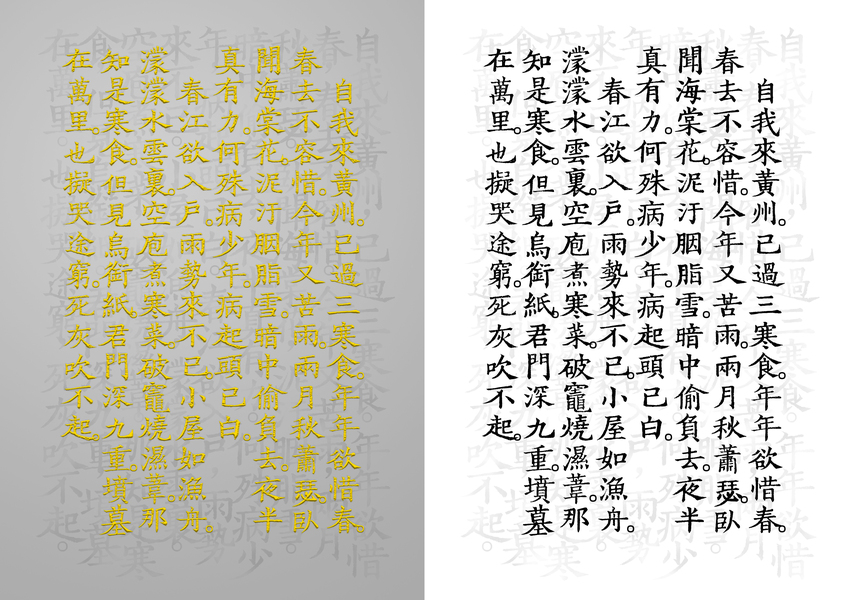 自我來黃州。已過三寒食。年年欲惜春。
春去不容惜。今年又苦雨。兩月秋蕭瑟。臥
聞海棠花。泥汙胭脂雪。暗中偷負去。夜半
真有力。何殊病少年。病起頭已白。
春江欲入戶。雨勢來不已。小屋如漁舟。
濛濛水雲裏。空庖煮寒菜。破竈燒濕葦。那
知是寒食。但見烏銜紙。君門深九重。墳墓
在萬里。也擬哭途窮。死灰吹不起。
自我來黃州。已過三寒食。年年欲惜春。
春去不容惜。今年又苦雨。兩月秋蕭瑟。臥
聞海棠花。泥汙胭脂雪。暗中偷負去。夜半
真有力。何殊病少年。病起頭已白。
春江欲入戶。雨勢來不已。小屋如漁舟。
濛濛水雲裏。空庖煮寒菜。破竈燒濕葦。那
知是寒食。但見烏銜紙。君門深九重。墳墓
在萬里。也擬哭途窮。死灰吹不起。